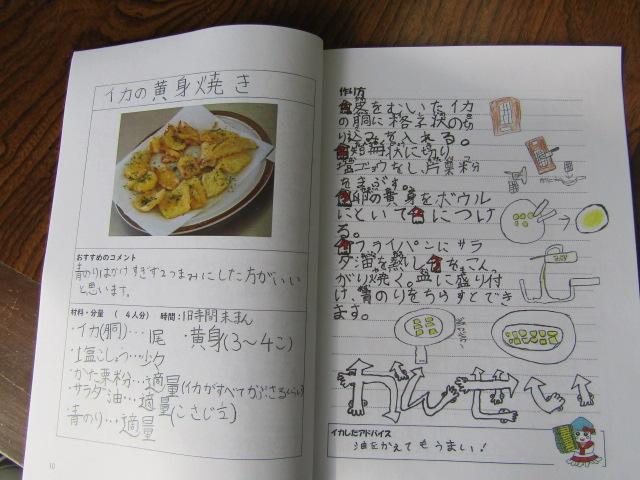 イカの黄身焼き
おすすめのコメント
青のりはかけすぎず2つまみにした方がいい
と思います。
材料・分量 ( 4人分) 時間:1時間未まん
・イカ(胴)…1尾 ・黄身(3〜4こ)
・塩こしょう…少々
・かた栗粉…適量(イカがすべてかぶさるくらい)
・サラダ油…適量
・青のり…適量(こさじ1/2)
10
作り方
皮をむいたイカ
の胴に格子状の切
り込みを入れる。
短冊状に切り
塩コショウをし、片栗粉
をまぶす。
卵の黄身をボウル
にといて に つけ
る。
フライパンにサラ
ダ油を熱し を こん
がり焼く。皿に盛り付
け、青のりをちらすとでき
ます。
かんせい
イカしたアドバイス
油をかえてもうまい!